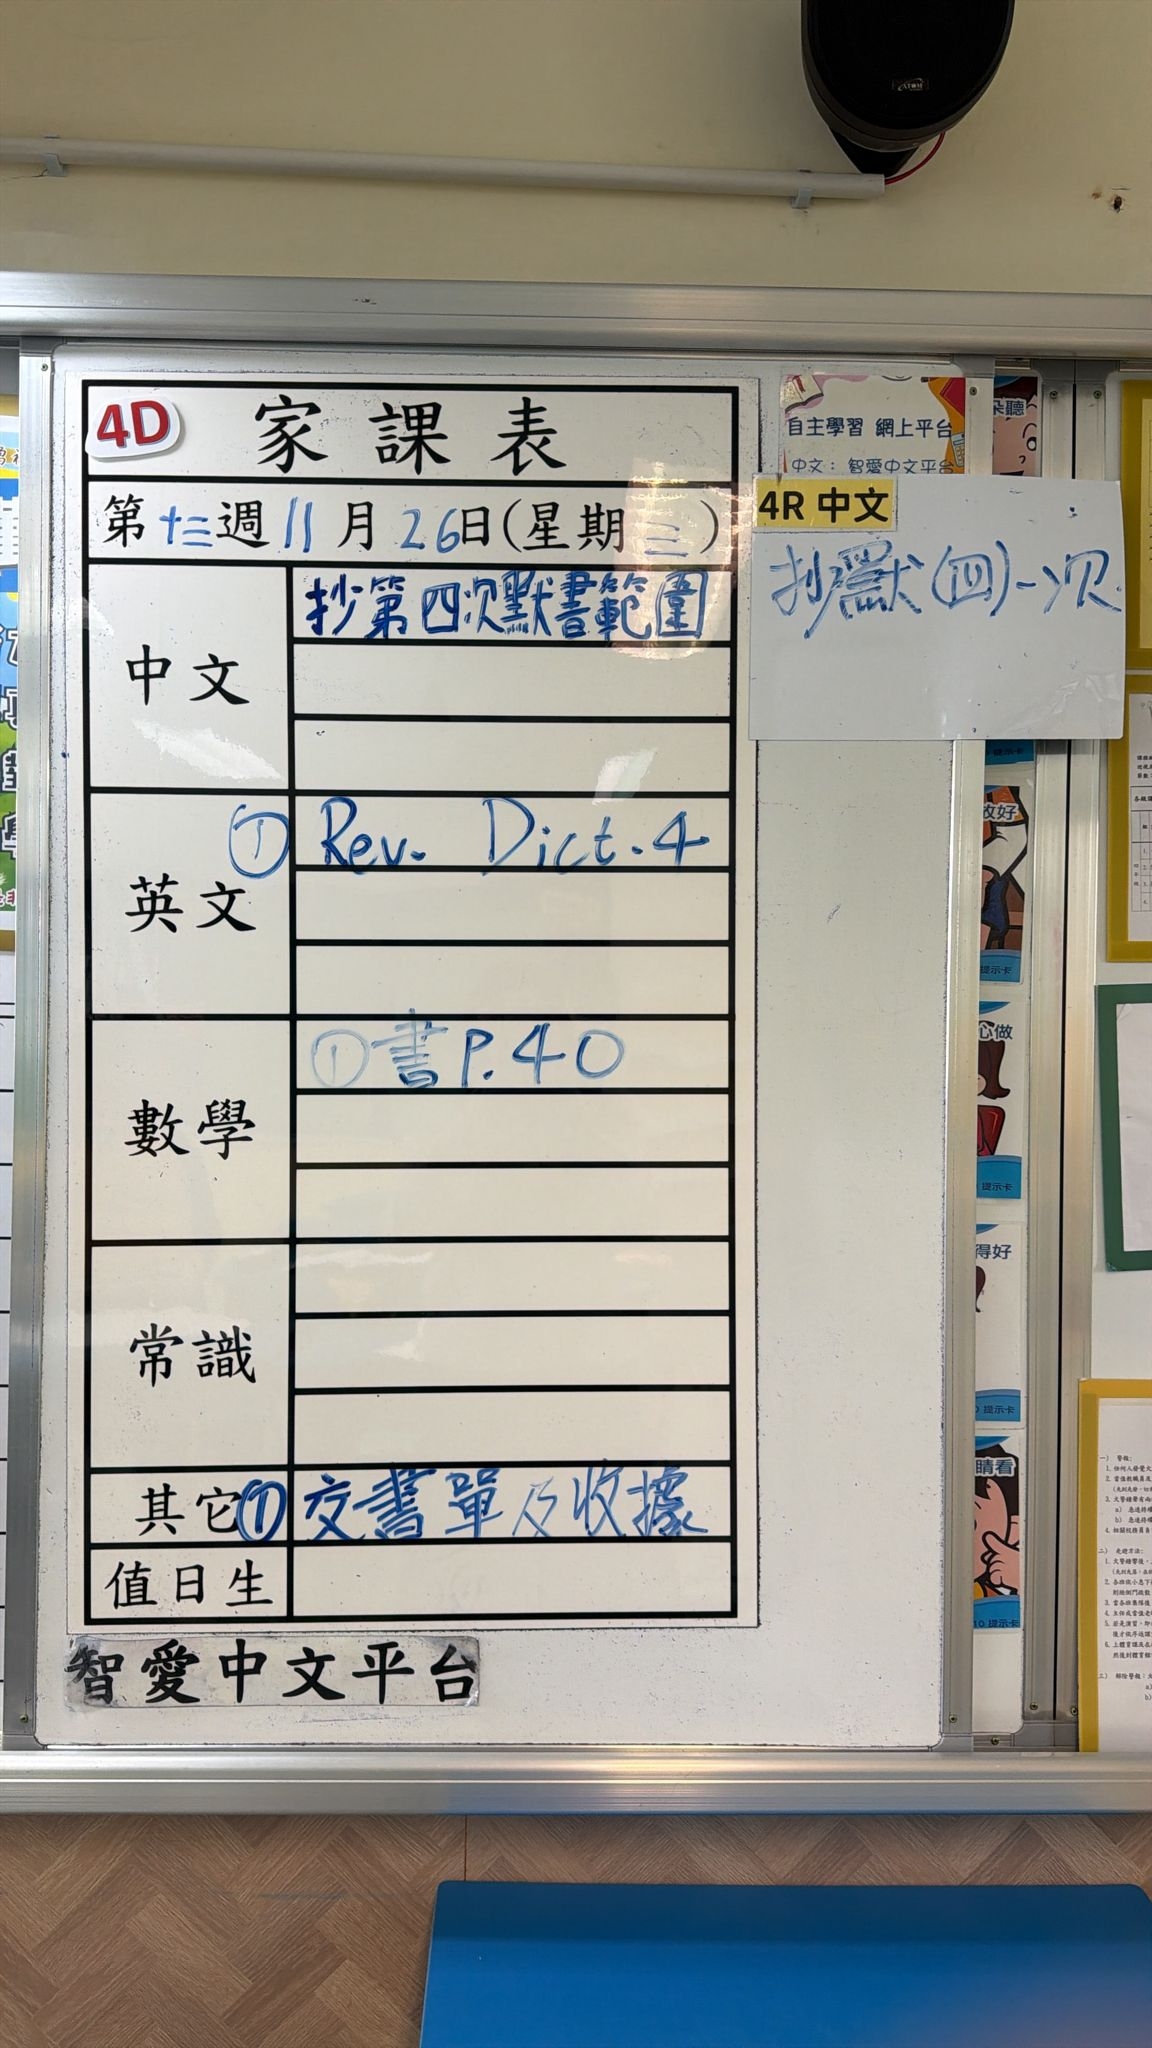 4D 家課表
第十三週 11月26日(星期三)
中文
抄第四次默書範圍
英文
① Rev. Dict.4
數學
①書P.40
常識
其它
①交書單及收據
值日生
智愛中文平台
自主學習 網上平台
中文：智愛中文平台
4R 中文
抄默(四)一次
朵聽
提示卡
做好
提示卡
心做
提示卡
得好
提示卡
睛看
10 提示卡